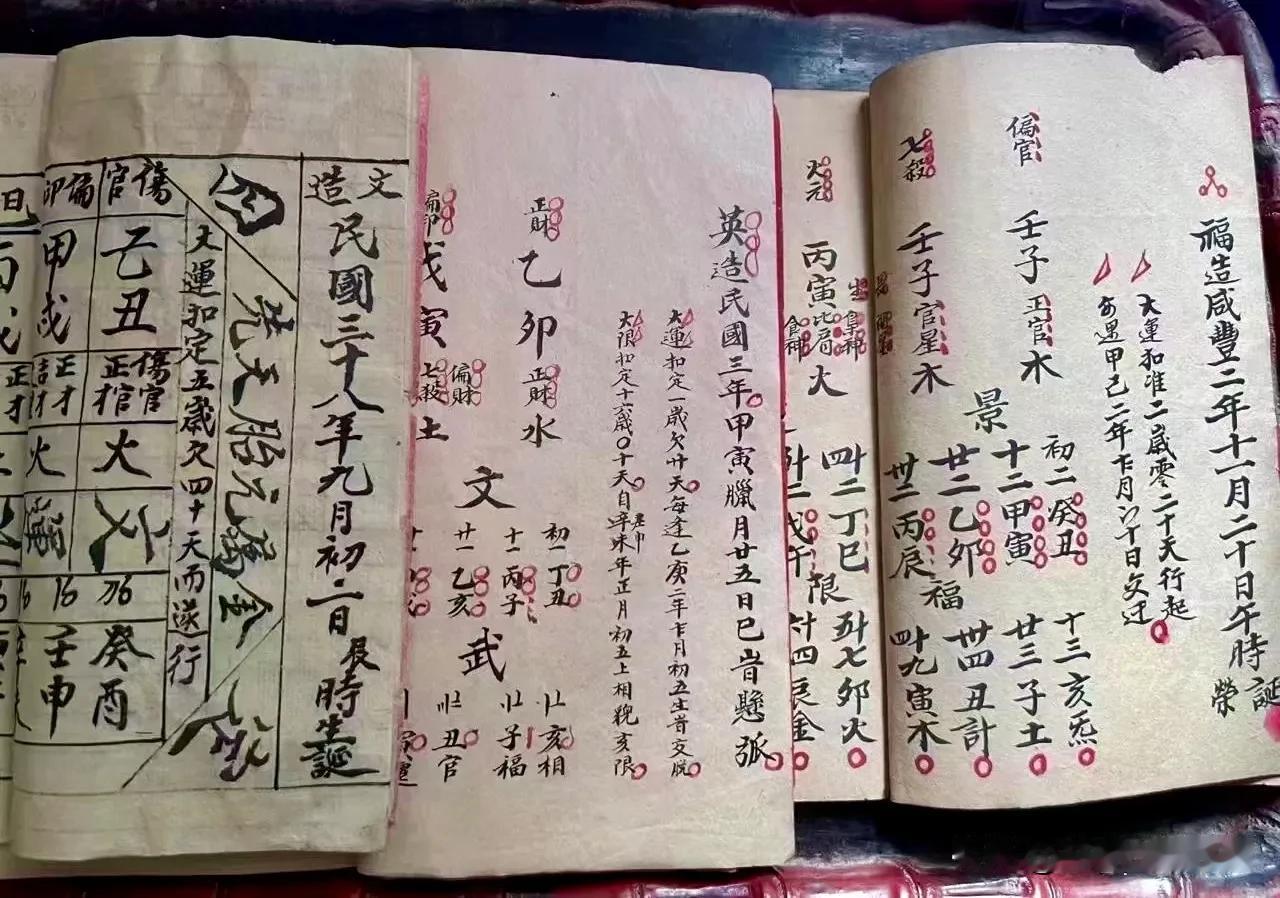 福造咸豐二年十一月二十日午時榮誕
大運扣准二歲零二十天行起
每遇甲己二年十月初十日交迁
偏官
壬子
正官
木
七殺
壬子
官星
木
景
初二癸丑
十二甲寅
廿二乙卯
卅二丙辰
福
十三亥炁
廿三子土
卅四丑計
四十九寅木
火元
丙寅
比肩
食神
火
四十二丁巳
五十二戊午
限
五十七卯火
六十四辰金
英造民國三年甲寅臘月廿五日巳時懸弧
大運扣定一歲欠廿天每逢乙庚二年十月初五生時交脫
大限扣定十六歲〇十天自辛未年正月初五上相貌亥限
正財
乙卯
正財
水
偏印
戊寅
偏財
七殺
土
文
初一丁丑
十一丙子
廿一乙亥
武
亥相
子福
丑官
文造
民國三十八年九月初二日辰時生誕
先天胎元屬金
大運扣定五歲欠四十天而遂行
傷官
己丑
傷官
正官
火
癸酉
偏印
甲戌
正才
火
16
壬申